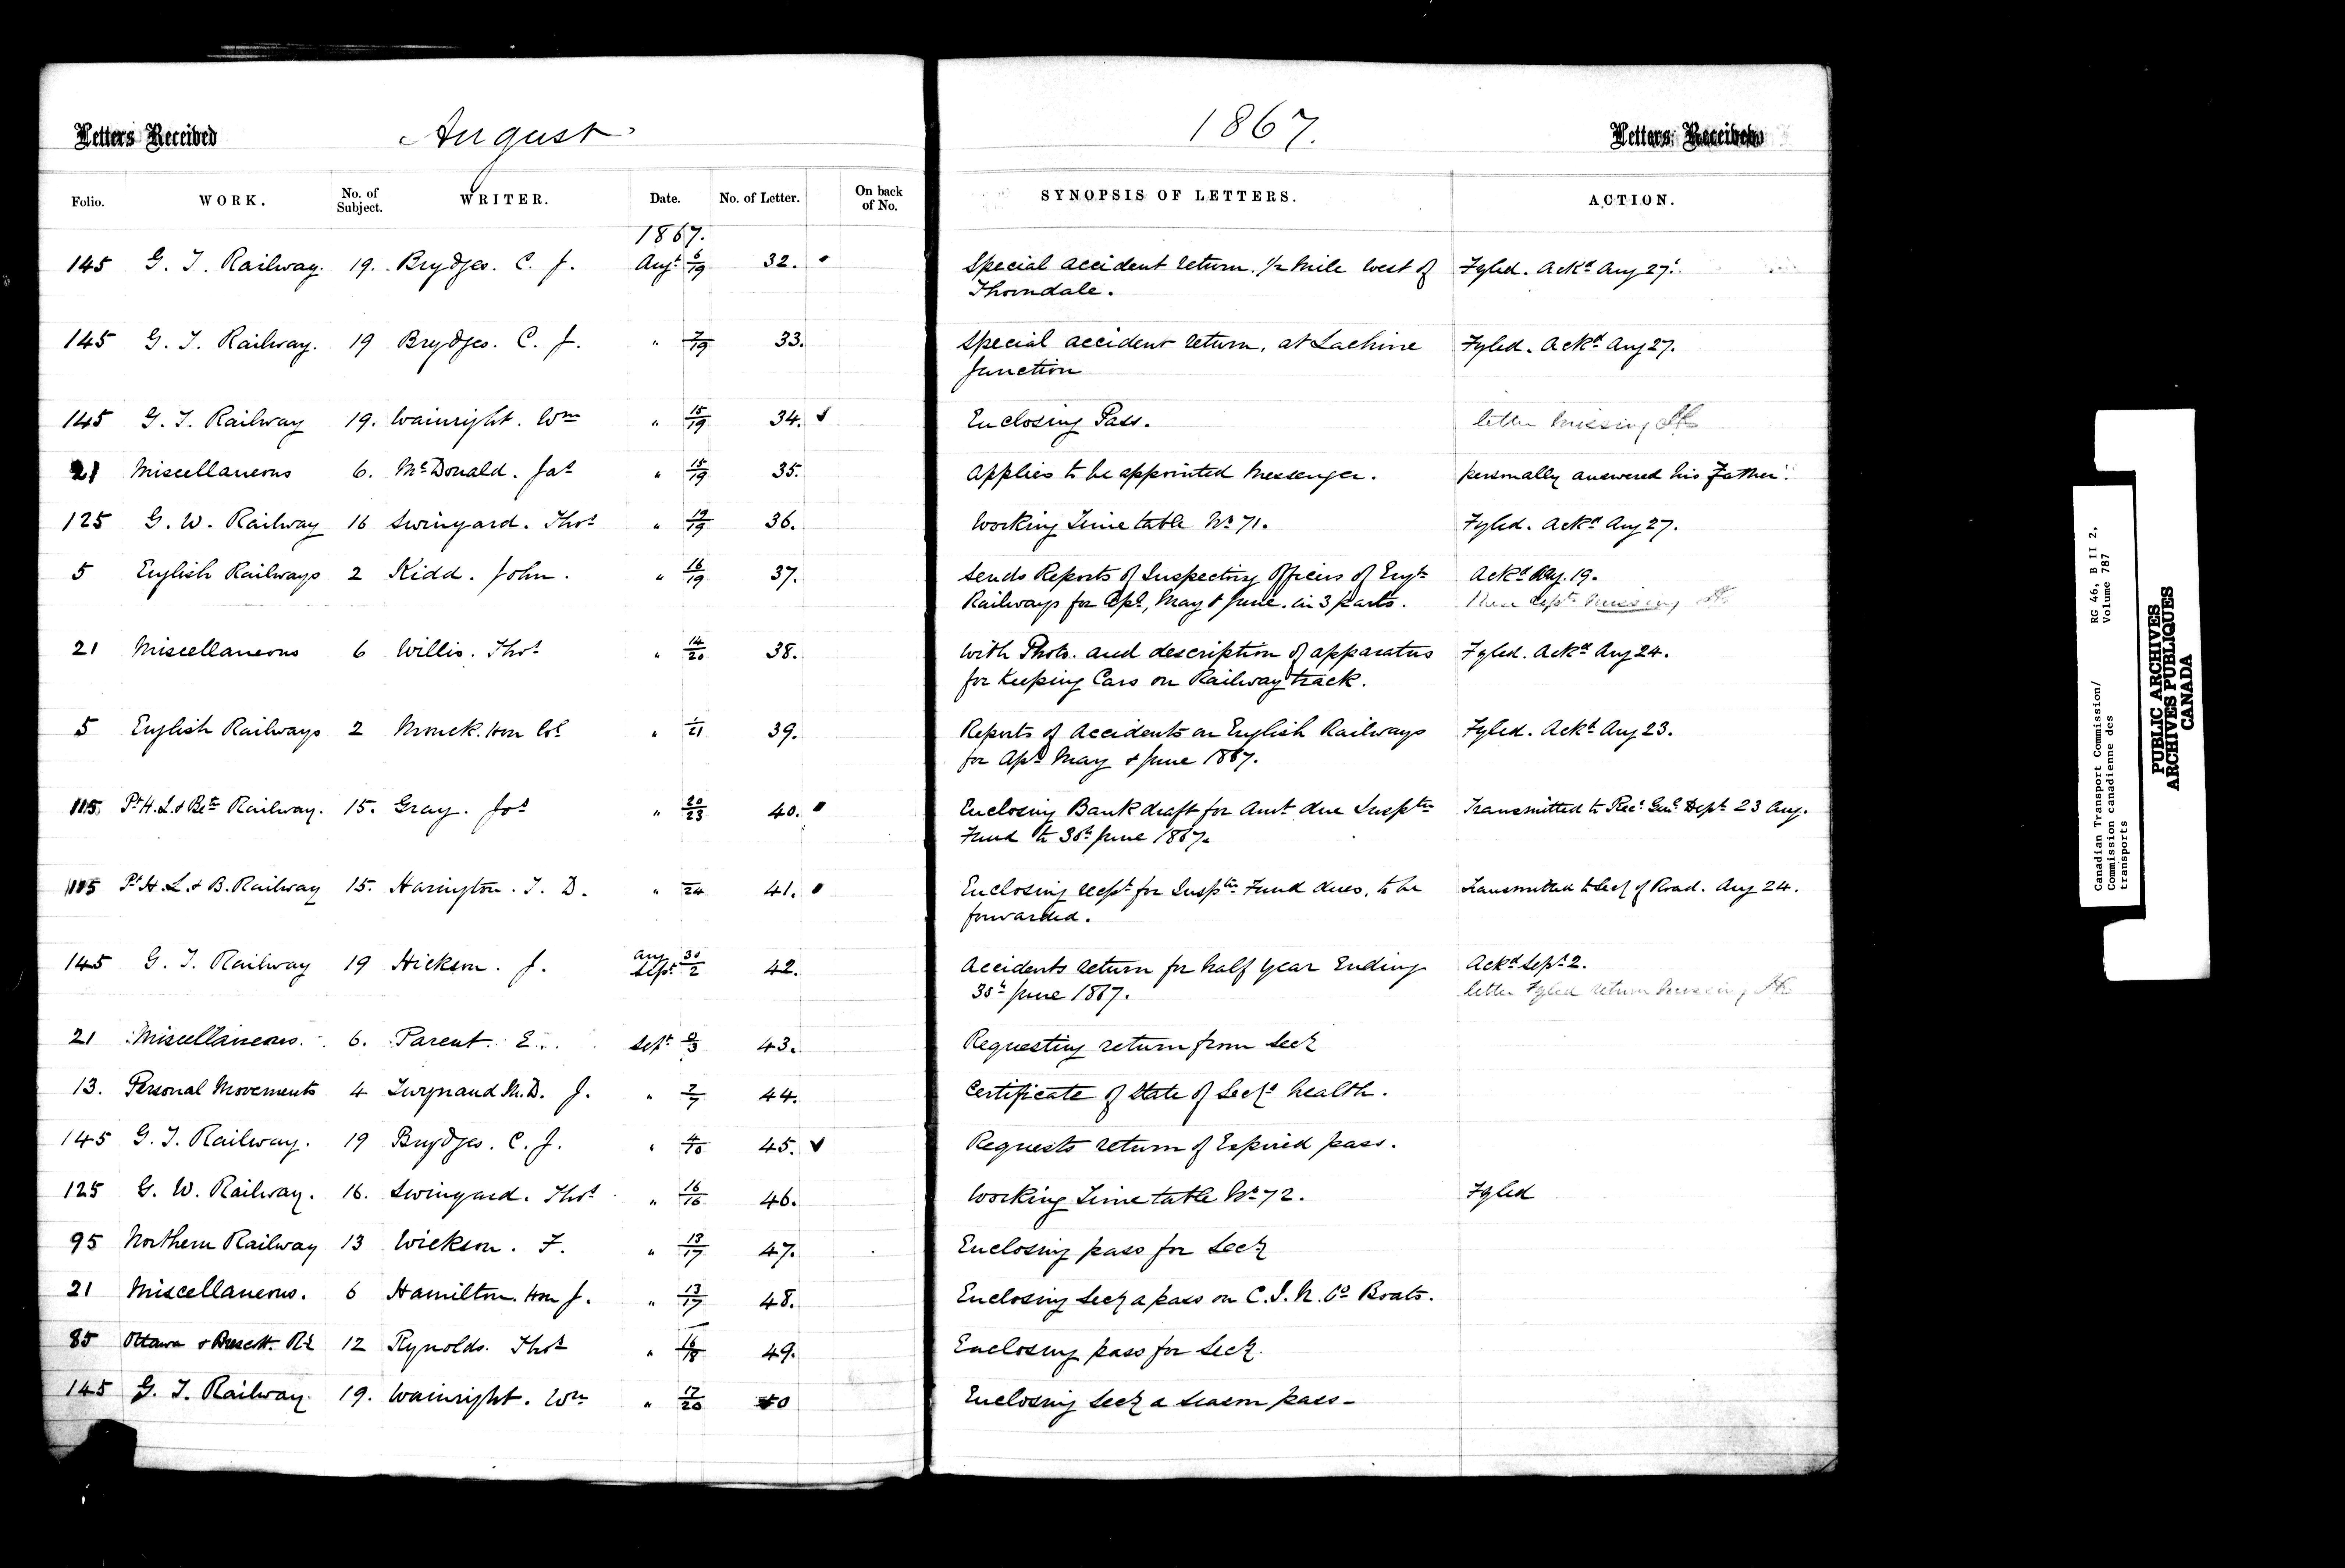 Letters Received August 1867. Letters Received
Folio. WORK. No. of Subject. WRITER. Date. No. of Letter. On back of No. SYNOPSIS OF LETTERS. ACTION.
1867.
145 G. T. Railway. 19. Brydges. C. J. Augt 6/19 32. Special accident return. 1/2 mile west of Fyled. Ackd Aug 27.
Thorndale.
145 G. T. Railway. 19 Brydges. C. J. " 7/19 33. Special accident return, at Lachine Fyled. Ackd Aug 27.
Junction
145 G. T. Railway 19. Wainright. Wm " 15/19 34. ✓ Enclosing Pass. letter missing
21 Miscellaneous 6. McDonald. Jas " 15/19 35. Applies to be appointed Messenger. personally answered his Father.
125 G. W. Railway 16 Swinyard. Thos " 19/19 36. Working Time table No 71. Fyled. Ackd Aug 27.
5 English Railways 2 Kidd. John. " 16/19 37. Sends Reports of Inspecting Officers of Engh Ackd Aug. 19.
Railways for Apl, May & June. in 3 parts. missing
21 Miscellaneous 6 Willis. Thos " 14/20 38. With Photo. and description of apparatus Fyled. Ackd Aug 24.
for keeping Cars on Railway track.
5 English Railways 2 Monck. Hon Col " 1/21 39. Reports of Accidents on English Railways Fyled. Ackd Aug 23.
for Apl May & June 1867.
115 Pt H. L. & Bn Railway. 15. Gray. Jos " 20/23 40. Enclosing Bank draft for Amt due Insptn Transmitted to Recr Genl Dept 23 Aug.
Fund to 30th June 1867.
115 Pt H. L. & B. Railway 15. Harington. T. D. " /24 41. Enclosing recpt for Insptn Fund dues, to be Transmitted to Secy of Road. Aug 24.
forwarded.
145 G. T. Railway 19 Hickson. J. Aug 30/Sept 2 42. Accidents return for half year Ending Ackd Sept 2.
30th June 1867. letter Fyled return missing
21 Miscellaneous. 6. Parent. E. Sept /3 43. Requesting return from Secy
13. Personal Movements 4 M.D. J. " 2/7 44. Certificate of State of Secys health.
145 G. T. Railway. 19 Brydges. C. J. " 4/10 45. ✓ Requests return of Expired pass.
125 G. W. Railway. 16. Swinyard. Thos " 16/16 46. Working Time table No 72. Fyled
95 Northern Railway 13 Wickson. F. " 13/17 47. Enclosing pass for Secy
21 Miscellaneous. 6 Hamilton. Hon J. " 13/17 48. Enclosing Secy a pass on C. I. N. Co Boats.
85 Ottawa & Prescott Rl 12 Reynolds. Thos " 16/18 49. Enclosing pass for Secy.
145 G. T. Railway 19. Wainright. Wm " 17/20 50 Enclosing Secy a season pass-
Canadian Transport Commission/ RG 46, B II 2,
Commission canadienne des Volume 787
transports
PUBLIC ARCHIVES
ARCHIVES PUBLIQUES
CANADA